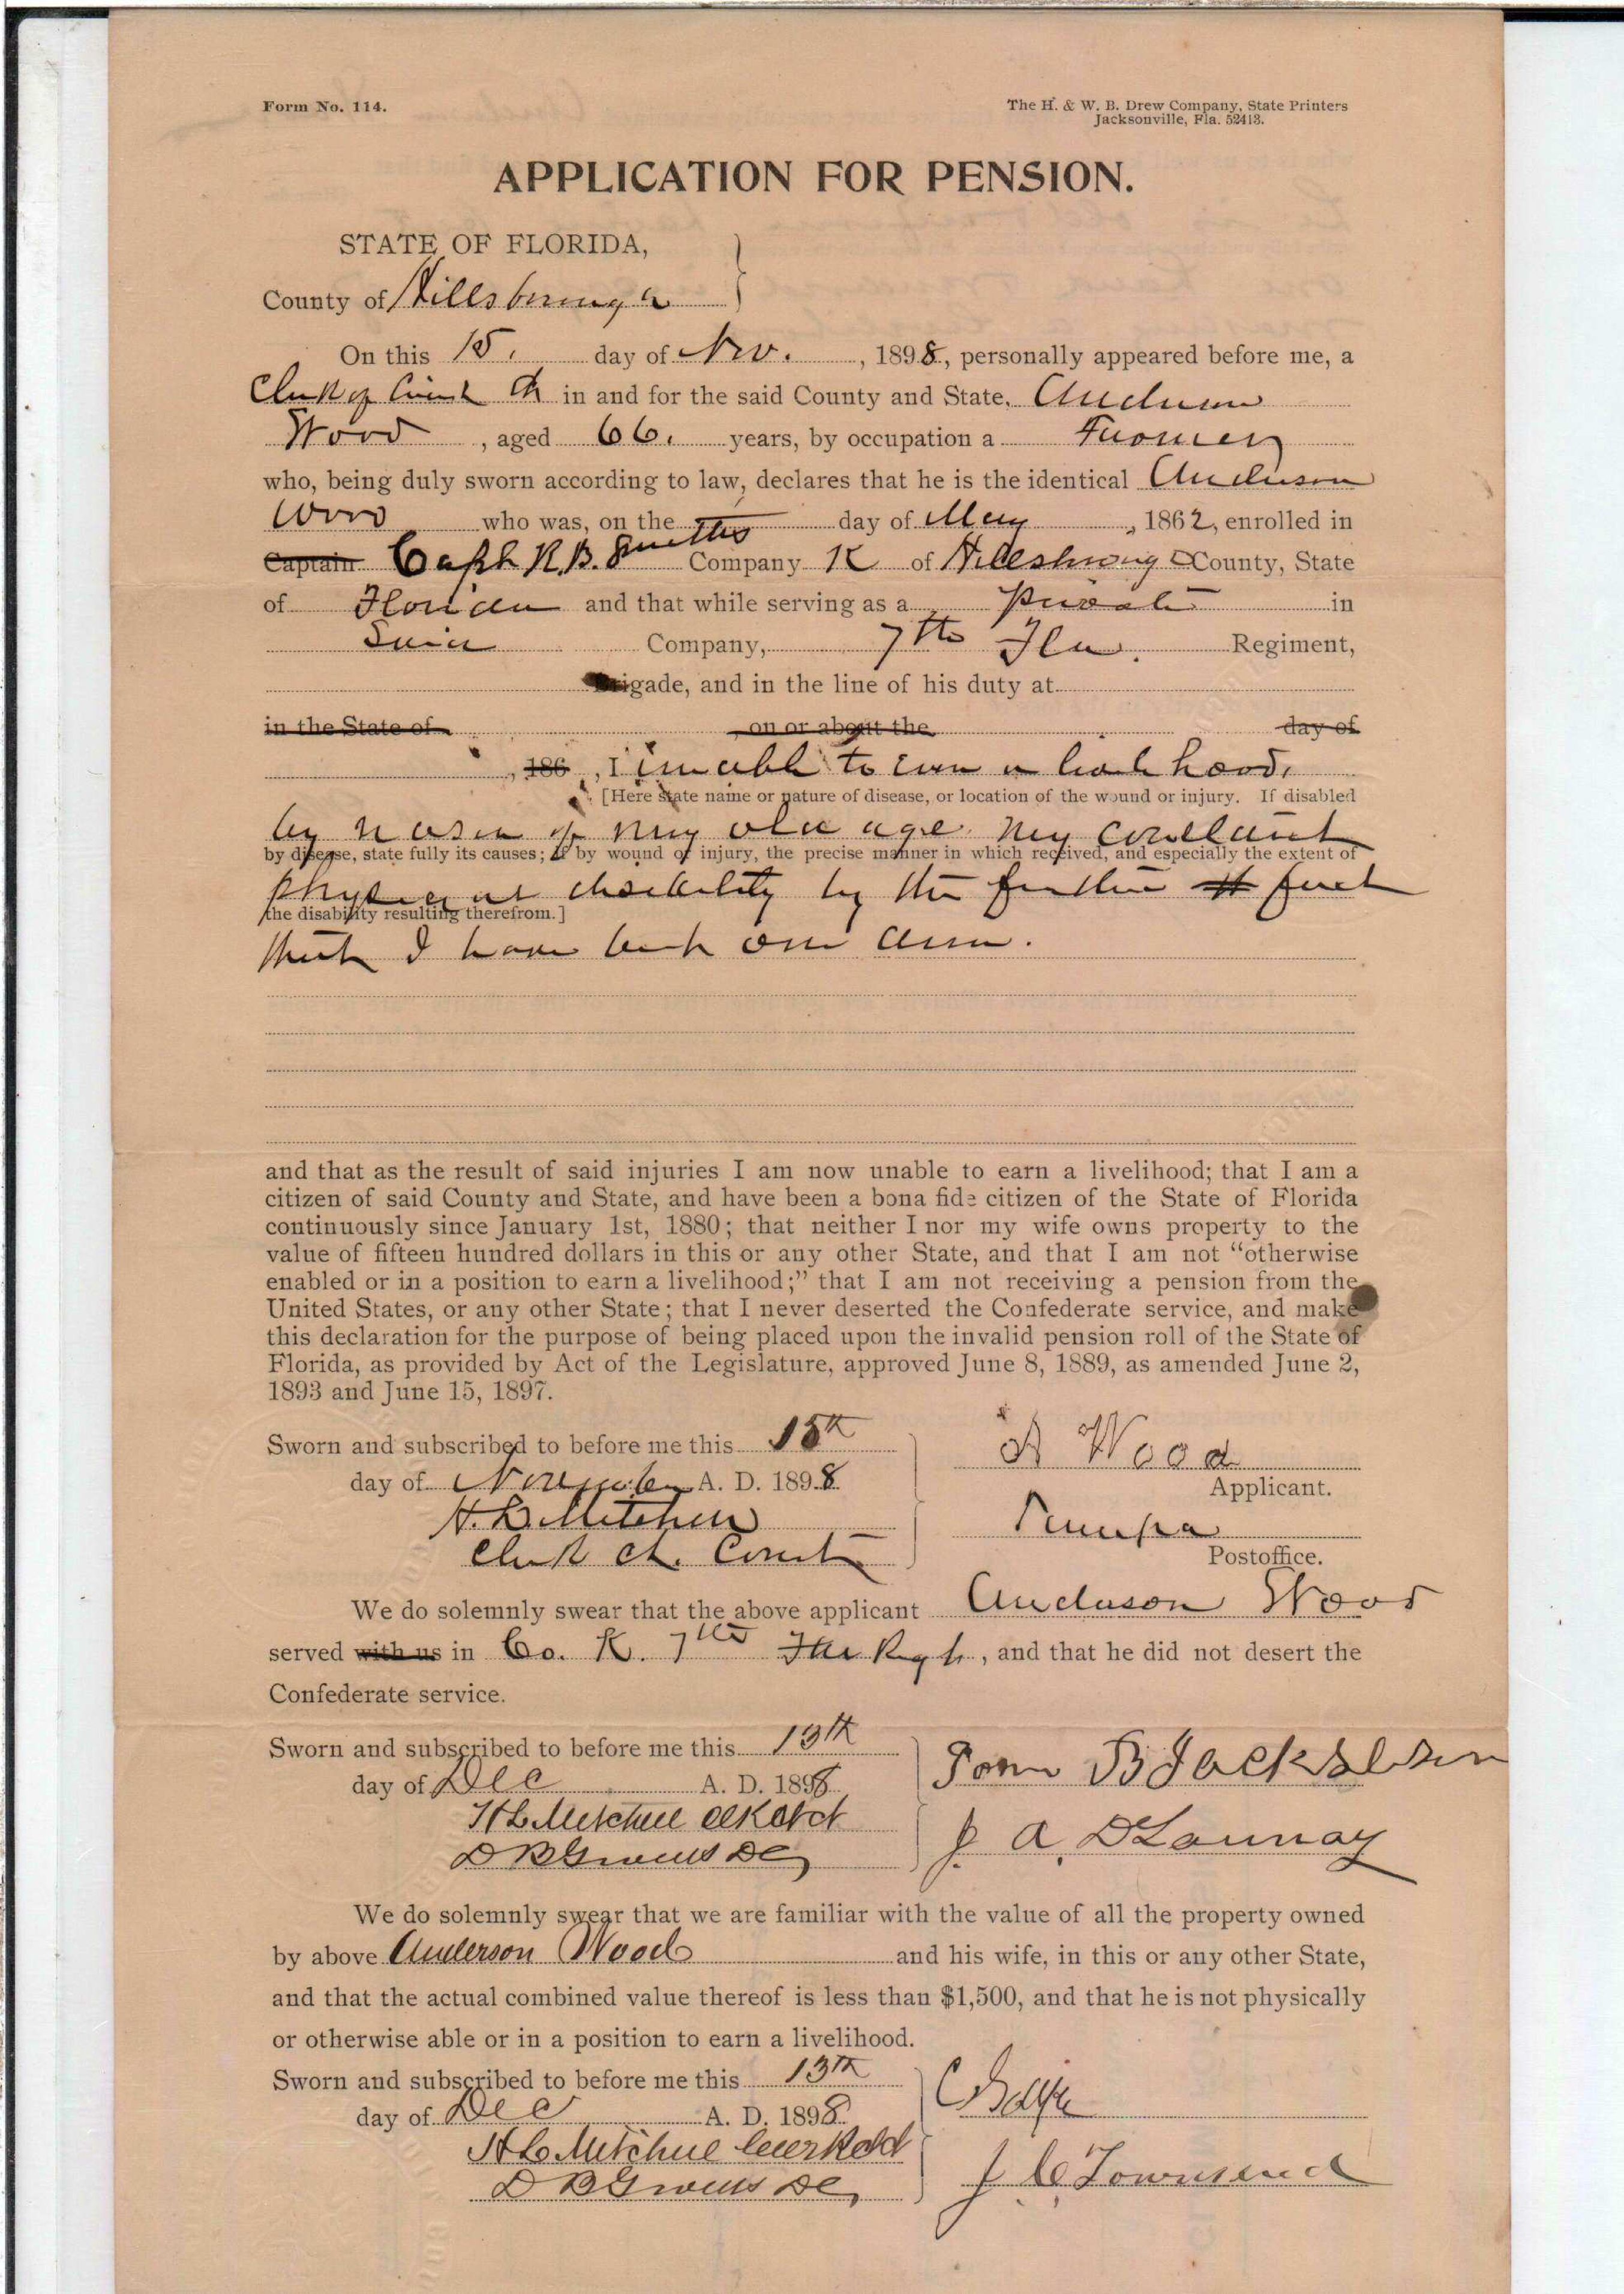 Form No. 114.
The H. & W. B. Drew Company, State Printers
Jacksonville, Fla. 52413.
APPLICATION FOR PENSION.
STATE OF FLORIDA,
County of Hillsborough
On this 15. day of Nov. , 1898, personally appeared before me, a
Clerk of Circuit Ct in and for the said County and State, Anderson
Wood , aged 66. years, by occupation a Farmer
who, being duly sworn according to law, declares that he is the identical Anderson
Wood who was, on the day of May , 1862, enrolled in
Captain Capt R. B. Smiths Company K of Hillsboroug County, State
of Florida and that while serving as a Private in
Said Company, 7th Fla. Regiment,
Brigade, and in the line of his duty at
in the State of , on or about the day of
, 186 , I im unable to earn a livelihood,
[Here state name or nature of disease, or location of the wound or injury. If disabled
by reason of my old age. my constant
by disease, state fully its causes; if by wound or injury, the precise manner in which received, and especially the extent of
physical disability by the further fact
the disability resulting therefrom.]
that I have but one arm.
and that as the result of said injuries I am now unable to earn a livelihood; that I am a
citizen of said County and State, and have been a bona fide citizen of the State of Florida
continuously since January 1st, 1880; that neither I nor my wife owns property to the
value of fifteen hundred dollars in this or any other State, and that I am not "otherwise
enabled or in a position to earn a livelihood;" that I am not receiving a pension from the
United States, or any other State; that I never deserted the Confederate service, and make
this declaration for the purpose of being placed upon the invalid pension roll of the State of
Florida, as provided by Act of the Legislature, approved June 8, 1889, as amended June 2,
1893 and June 15, 1897.
Sworn and subscribed to before me this 15th
day of November A. D. 1898
A Wood
Applicant.
H. L. Mitchell
Clerk Ct. Court
Tampa
Postoffice.
We do solemnly swear that the above applicant Anderson Wood
served with us in Co. K. 7th Fla Regt., and that he did not desert the
Confederate service.
Sworn and subscribed to before me this 13th
day of Dec A. D. 1898
Tom B Jackson
H L Mitchell Clk Ct Ct
D B Givens DC
J. A. DLaunay
We do solemnly swear that we are familiar with the value of all the property owned
by above Anderson Wood and his wife, in this or any other State,
and that the actual combined value thereof is less than $1,500, and that he is not physically
or otherwise able or in a position to earn a livelihood.
Sworn and subscribed to before me this 13th
day of Dec A. D. 1898
H L Mitchell Clerk
D B Givens DC,
J C Townsend